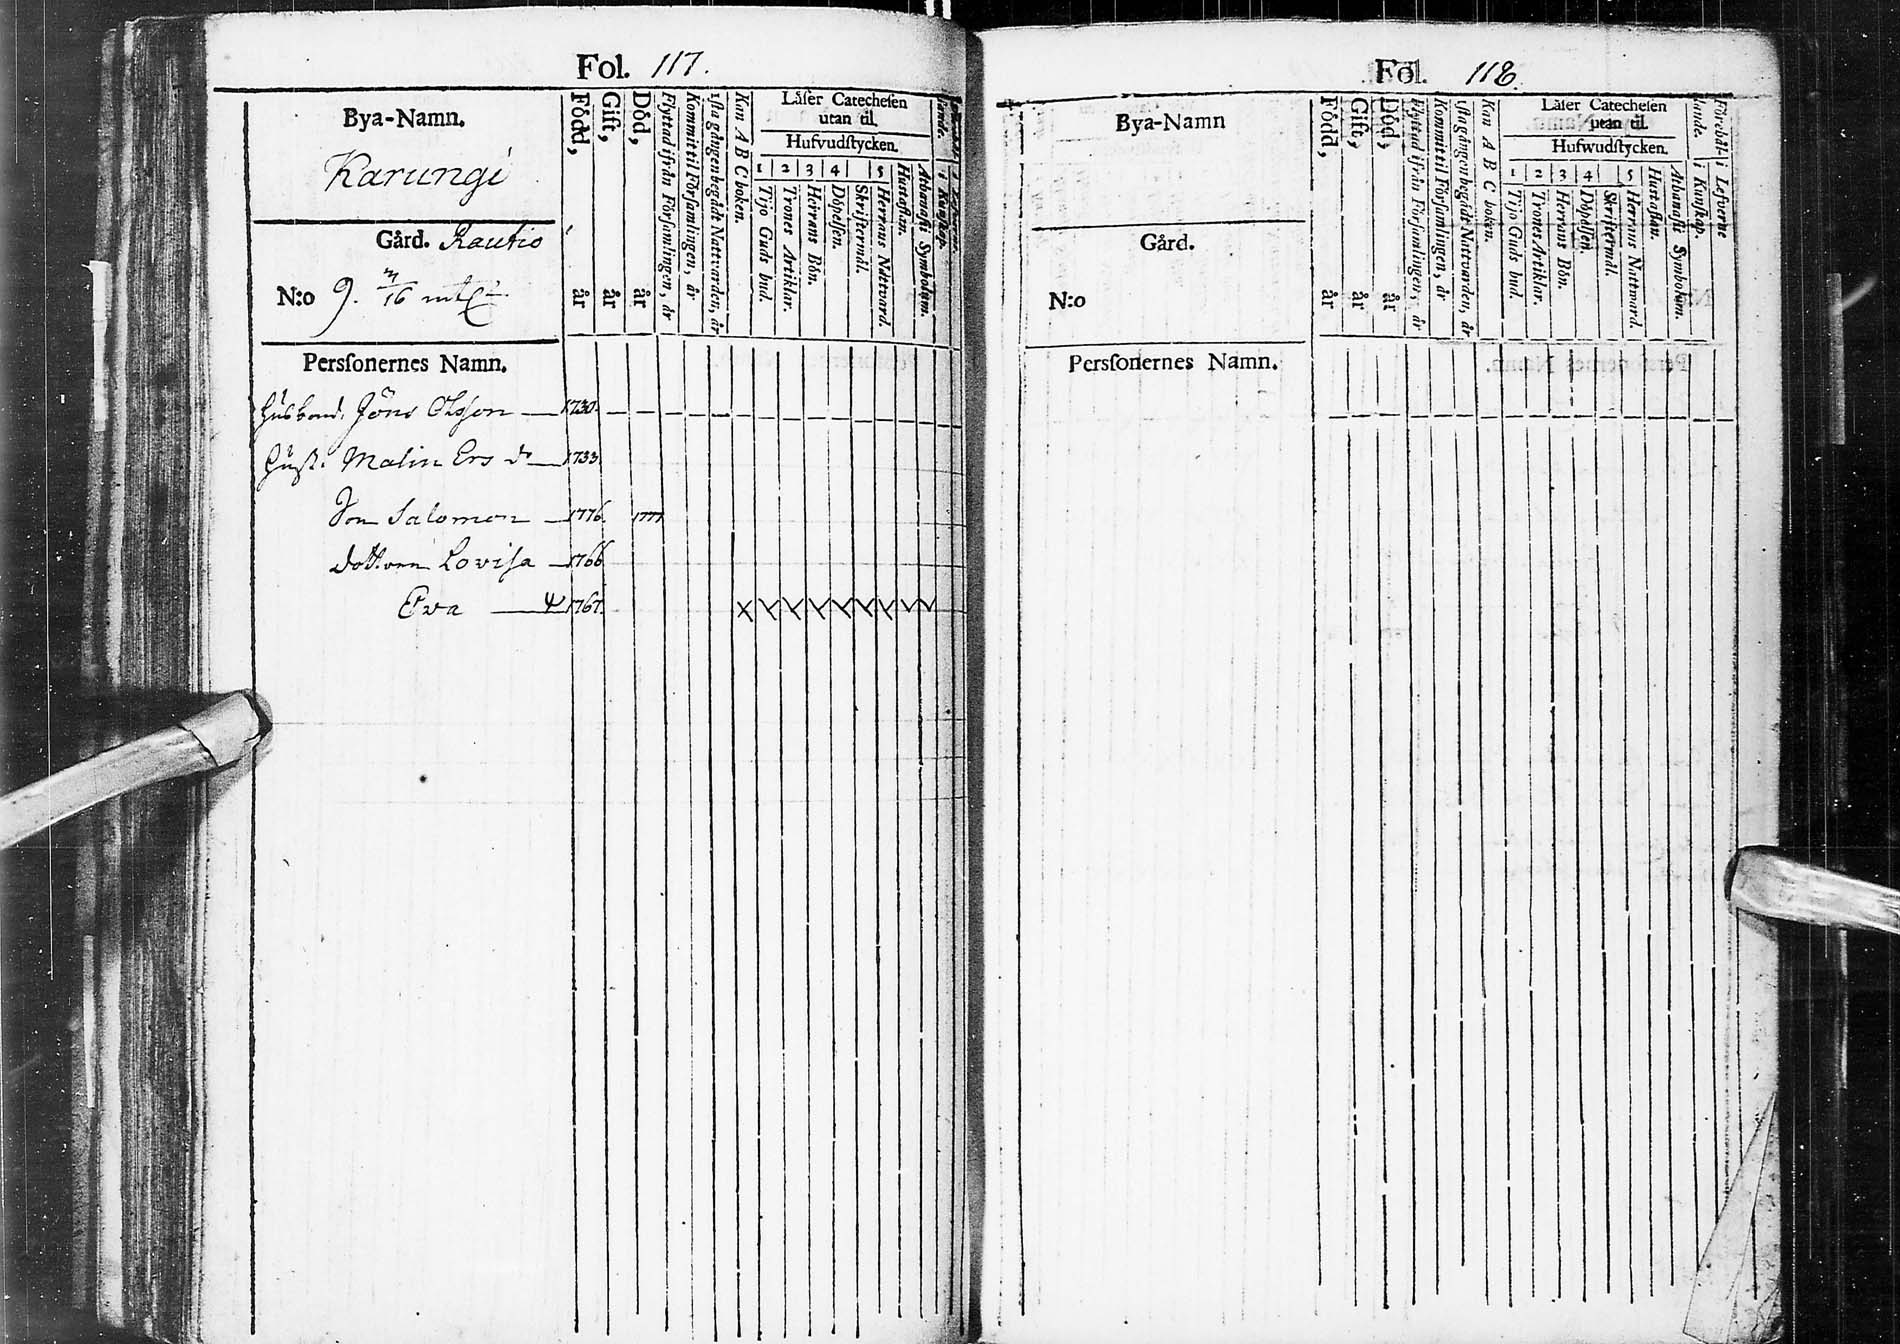 Fol. 117.
Bya-Namn.
Karungi
Gård. Rautio
N:o 9. 7/16 mtl
Perſonernes Namn.
Född, år
Gift, år
Död, år
Flyttad ifrån Förſamlingen, år
Kommit til Förſamlingen, år
1ſta gången begådt Nattvarden, år
Kan A B C boken.
Läſer Catecheſen
utan til.
Hufvudſtycken.
1 2 3 4 5
Tijo Guds bud.
Trones Artiklar.
Herrans Bön.
Döpelſen.
Skriftermål.
Herrans Nattvard.
Hustaflan.
Athanaſii Symbolum.
Huſbond. Jöns Olſson 1730.
Huſt. Malin Ers dr 1733.
Son Salomon 1776. 1777
Dottren Loviſa 1766
Eva 1767.
Fol. 118.
Bya-Namn
Gård.
N:o
Perſonernes Namn.
Född, år
Gift, år
Död, år
Flyttad ifrån Förſamlingen, år
Kommit til Förſamlingen, år
1ſta gången begådt Nattvarden, år
Kan A B C boken.
Läſer Catecheſen
utan til.
Hufwudſtycken.
1 2 3 4 5
Tijo Guds bud.
Trones Artiklar.
Herrans Bön.
Döpelſen.
Skriftermål.
Herrans Nattvard.
Huſtaflan.
Athanaſii Symbolum.
Förehållande i Kunſkap.
i Lefverne